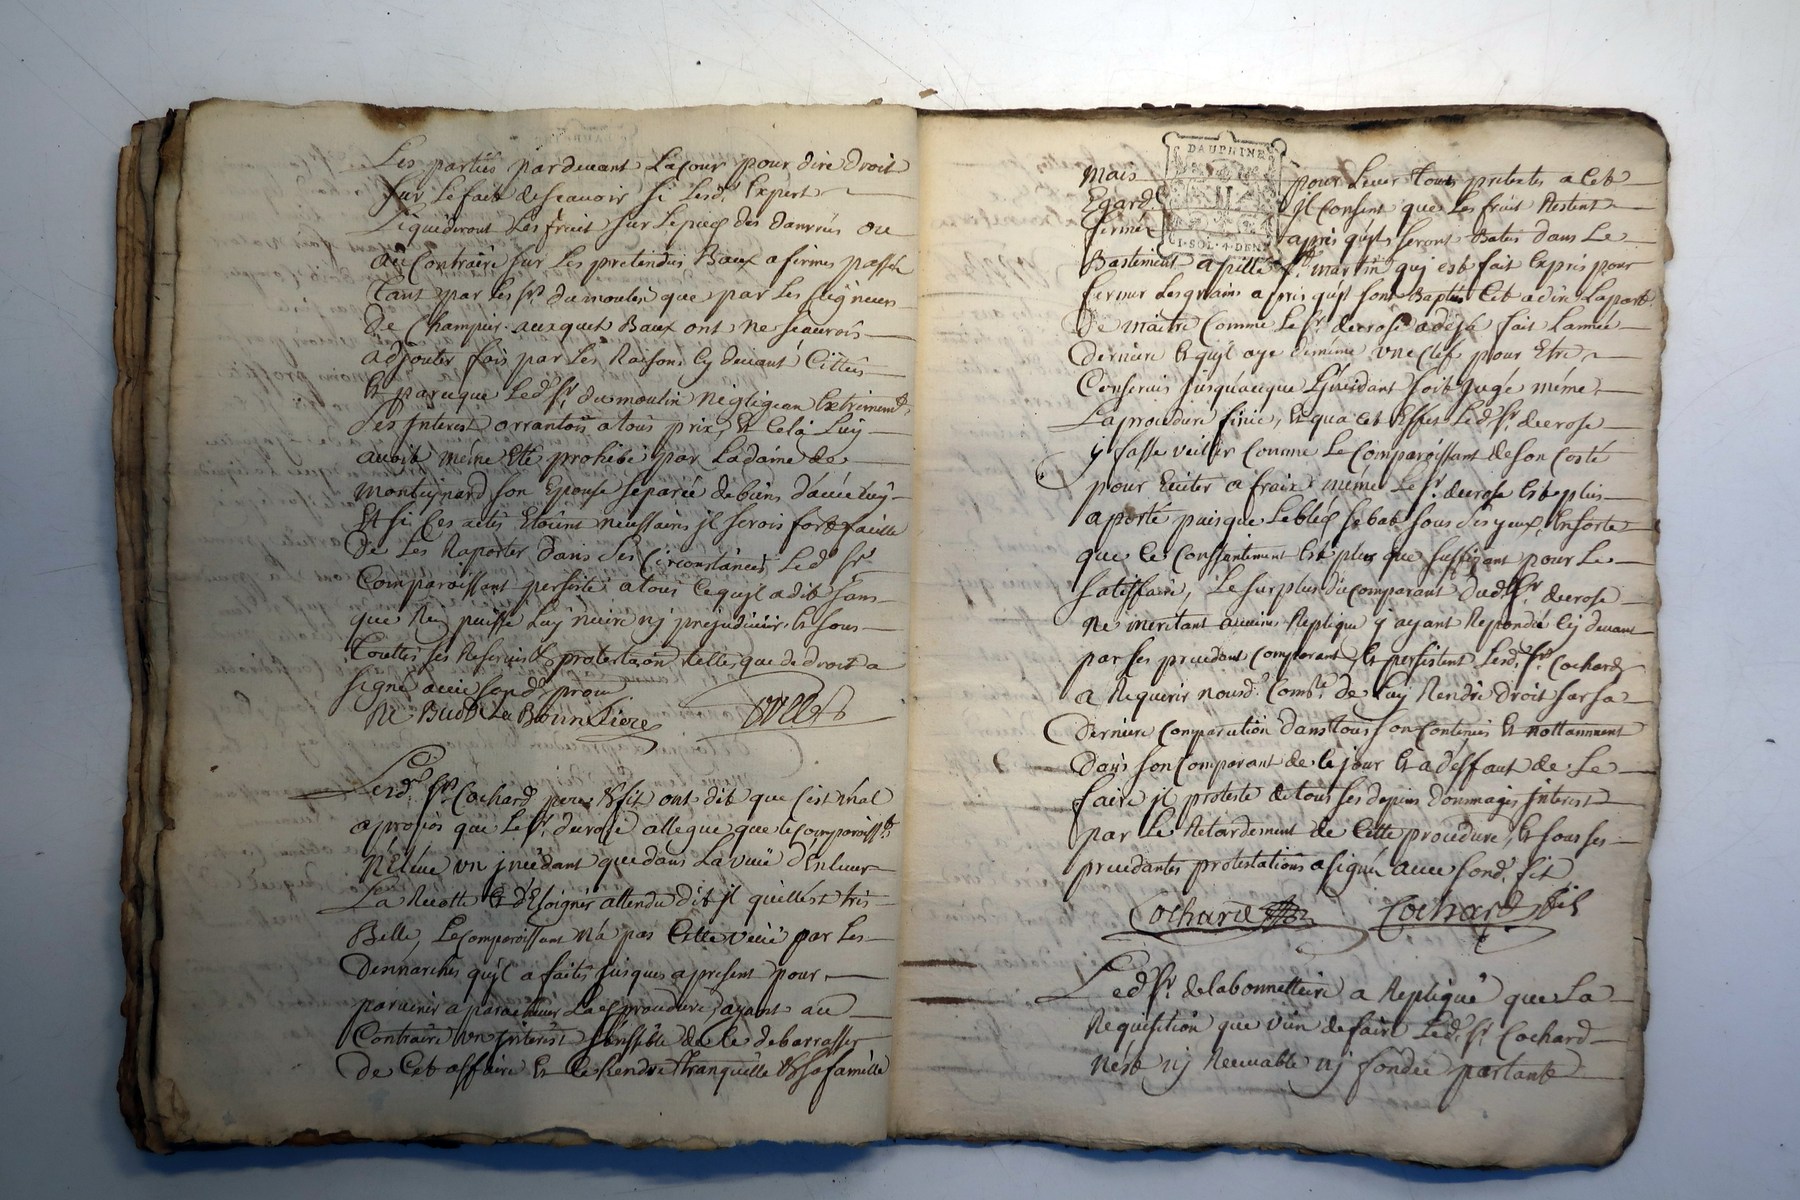 Les partiës pardeuant Lacour pour dire droit
sur Le fait de scauoir si Lesd.ts Expert
Liquideront Les fruit sur Le pied des danrréés ou
au Contraire sur Les pretendus Baux a fermes passés
Tant par Les Srs. du moulin que par Les seigneurs
De Champier auxquet Baux ont ne scaurois
adjouter fois par Les Raisons Cy deuant Cittéës
Et parceque Led.t Sr. du moulin Negligean Extrement
ses Interest arrantoit a tous prix, Et Cela Luy
auoit même Eté prohibé par Ladame de
Monteynard son Epouse separéé de biens d'auec Luy
Et si Ces actes Etoint neissaires jl serois fort facille
De Les Raporter dans Ses Circonstances Led.t Sr.
Comparoissant persiste a tous Cequ'jl a dit sans
que Rien puisse Luy nuire nj prejudicier Et sous
Touttes ses Reserues Et protestaõn telles que de droit a
signé auec son d.t procu.
De Labonnetiere
Lesd.ts Srs. Cochard pere & fit ont dit que C'est mal
apropos que Le Sr. ducrosé allegue que Le Comparoiss.t
N'Eléue vn jncidant que dans La veüe d'Enleuer
La Recolte Et d'Eloigner attendu dit jl qu'elle Est tres
Belle, Le Comparoissant N'a pas Cette veüe par Les
Demarches qu'jl a faites Jusques apresent pour
paruenir a paracheuer La procedure, ayant au
Contraire vn jnterest sensible de Ce debarrasser
De Cet affaire Et Ce Rendre tranquille & sa famille
DAUPHINE
1·SOL·4·DEN
Mais pour Leuer Tous pretextes a Cet
Egard jl Consent que Les fruit Restent
fermé apres qu'jls seront Batus dans Le
Bastement a St. martin quj est fait Expres pour
fermer Les grains apres qu'jls sont Battus C'et a dire La part
De maitre Comme Le Sr. ducrosé a deja fait Lannéé
Derniere Et qu'jl aye de même vne Clef pour Etre
Conserués jusqu'aceque L'jncidant soit jugé même
La procedure finie, Et qua cet Effet Led.t Sr. ducrosé
y fasse veiller Comme Le Comparoissant de son Costé
pour Euiter a fraix même Le Sr. ducrosé Est plus
aporté puisque Le bled se bat sous ses yeux, Ensorte
que Ce Consentiment Est plus que suffizant pour Le
satisfaire, Le surplus du Comparant dud.t Sr. ducrosé
Ne meritant aucune Replique y ayant Repondû Cy deuant
par ses precedant Comparant, Et persistent Lesd.ts Srs. Cochard
a Requerir nousd.t Com.re de Luy Rendre droit sur sa
Derniere Comparution dans tous son Contenus Et nottanment
Dans son Comparant de Ce jour Et a deffaut de Le
faire jl proteste de tous ses depens dommages jnterest
par Le Retardement de Cette procedure, Et sous ses
precedantes protestations a signé auec sond.t fit
Cochard Cochard fils
Led.t Sr. de Labonnetiere a Repliqué que La
Requisition que vien de faire Led.t Sr. Cochard
N'est nj Receuable nj fondéé partant